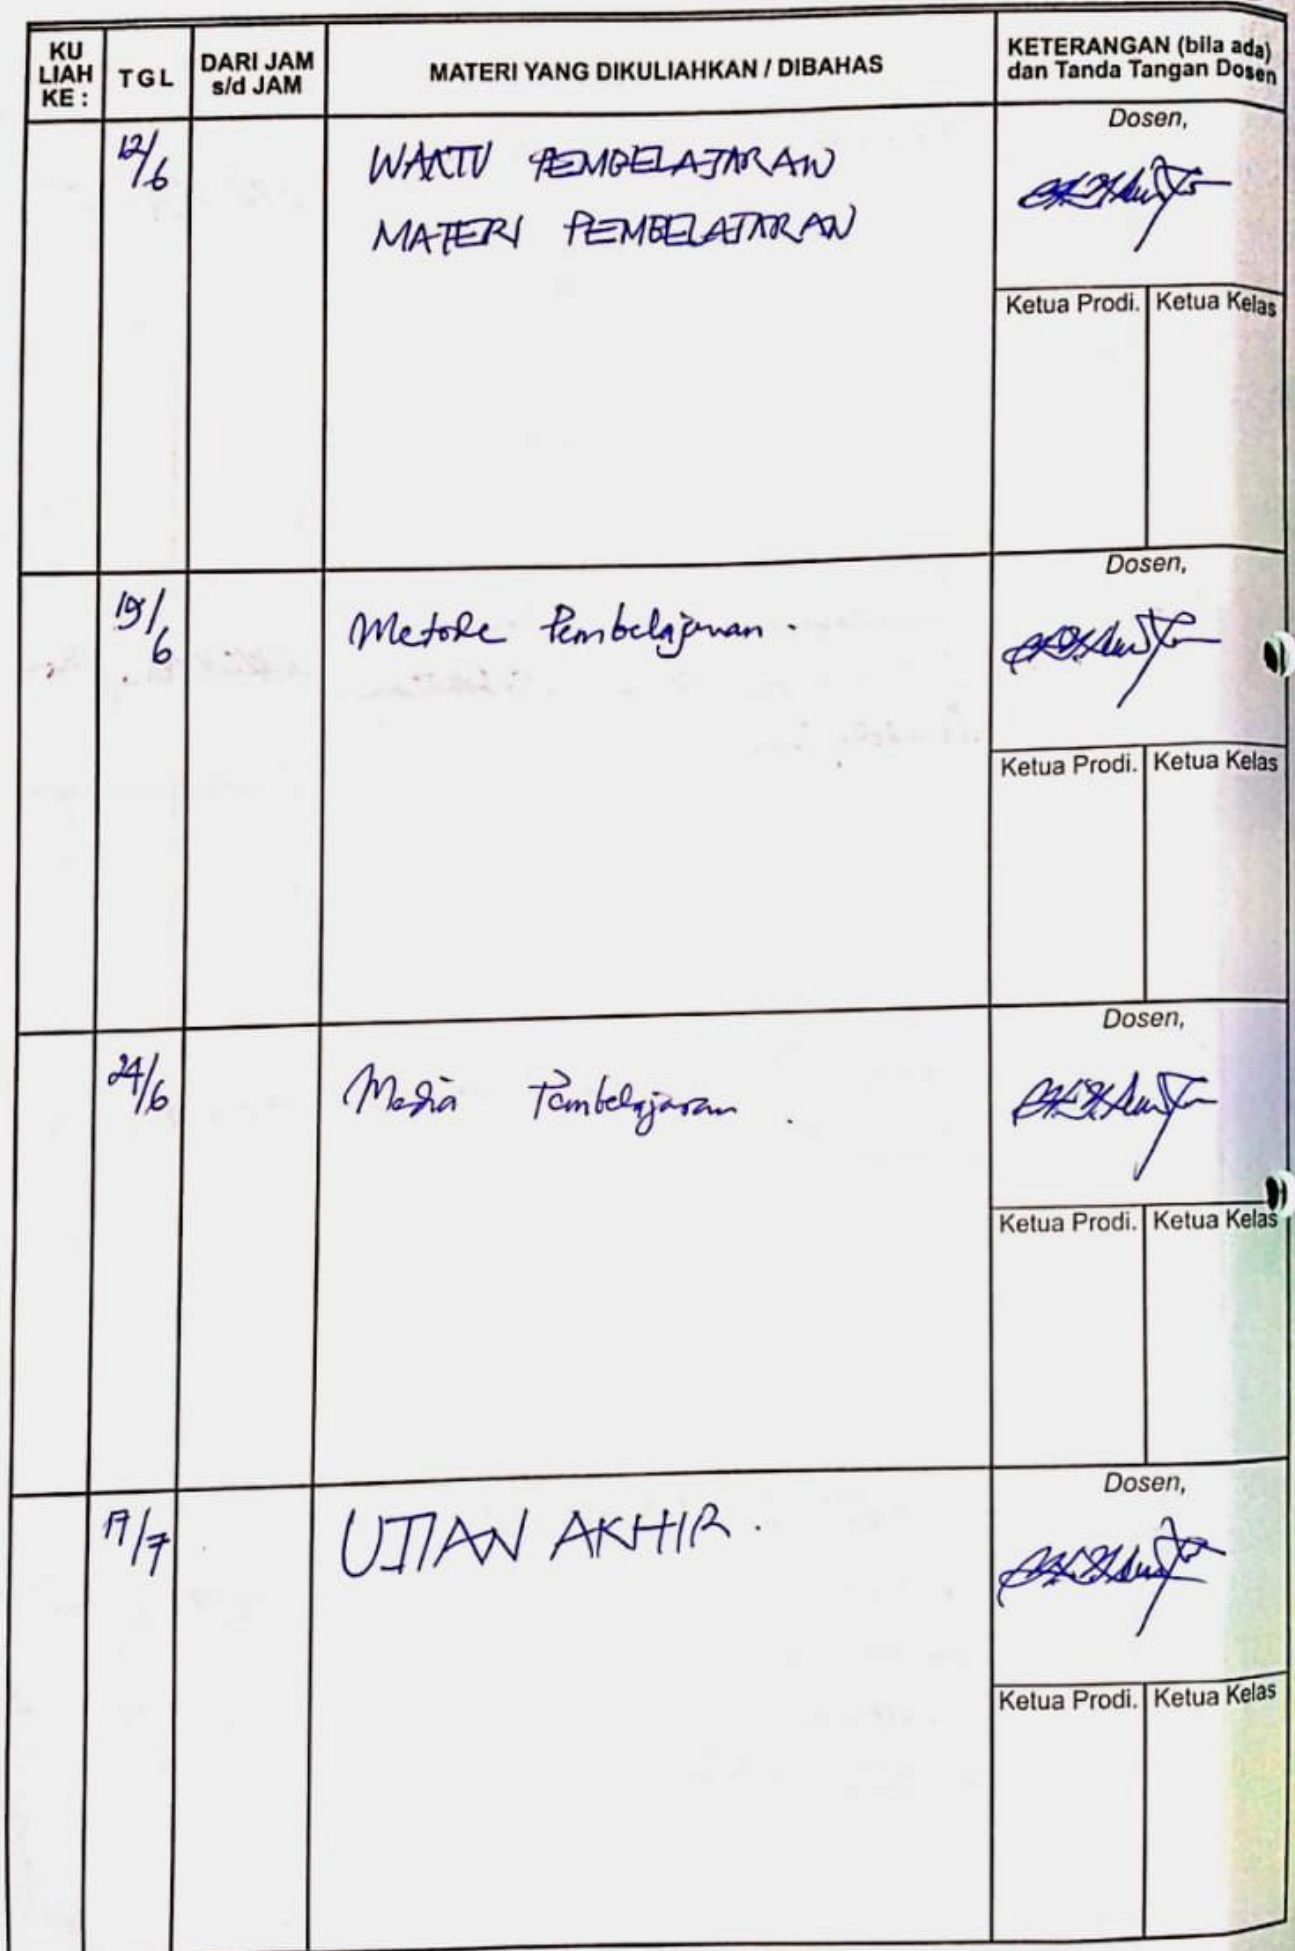 KU
LIAH
KE :
TGL
DARI JAM
s/d JAM
MATERI YANG DIKULIAHKAN / DIBAHAS
KETERANGAN (bila ada)
dan Tanda Tangan Dosen
12/6
WAKTU PEMBELAJARAN
MATERI PEMBELAJARAN
Dosen,
Ketua Prodi. Ketua Kelas
19/6
Metode Pembelajaran.
Dosen,
Ketua Prodi. Ketua Kelas
24/6
Media Pembelajaran.
Dosen,
Ketua Prodi. Ketua Kelas
17/7
UJIAN AKHIR.
Dosen,
Ketua Prodi. Ketua Kelas